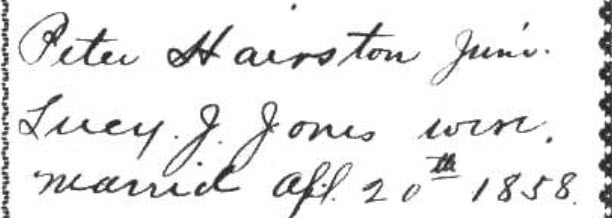 Peter Hairston Jun'r.
Lucy. J. Jones were.
married Apl. 20th 1858.